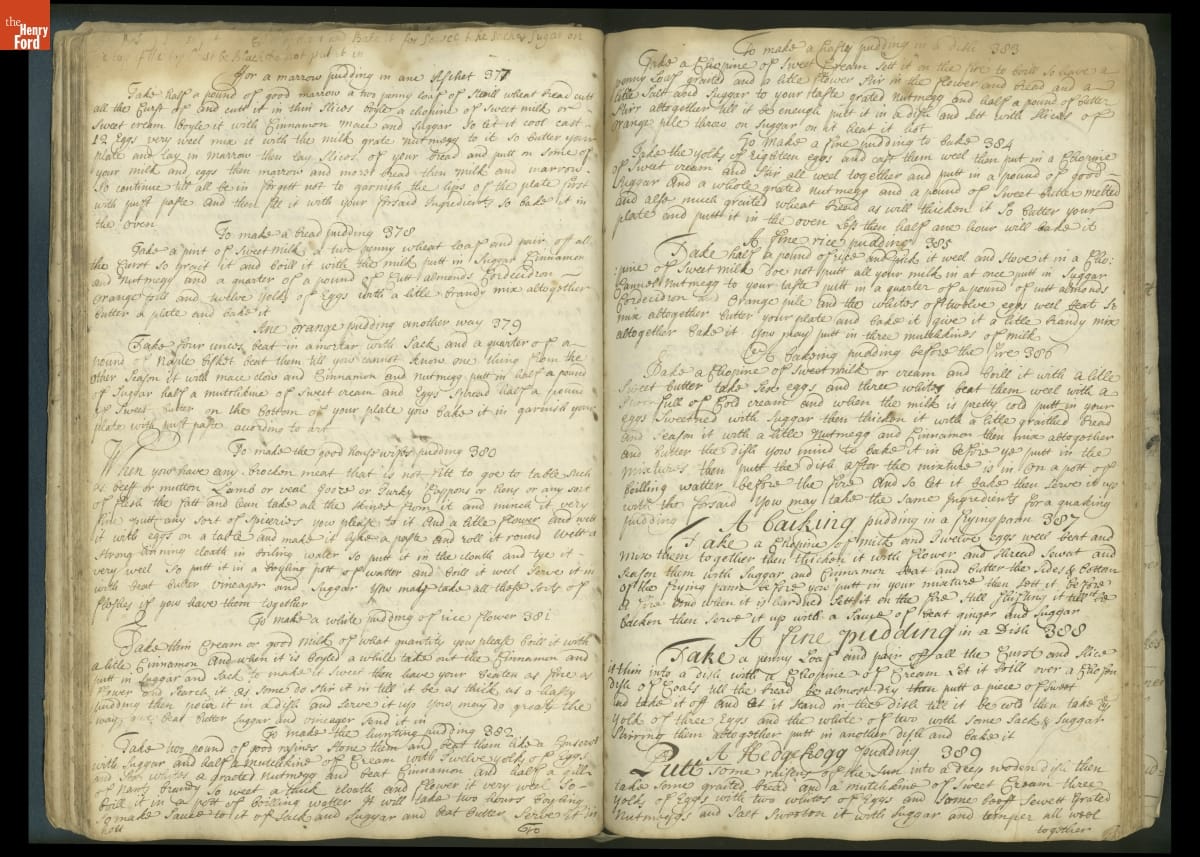 the
Henry
Ford
and Bake it for Sauce take Sack & Sugar on
not put it in
For a marrow pudding in ane Aschet 377
Take half a pound of good marrow a two penny loaf of Stall wheat bread cutt
all the Curst of and cutt it in thin Slices boyle a chopine of Sweet milk or
Sweet cream boyle it with Cinnamon mace and Suggar So let it cool cast
12 Eggs very weel mix it with the milk grate nutmegg to it So butter your
plate and lay in marrow then lay Slices of your bread and putt in Some of
your milk and eggs then marrow and more bread then milk and marrow
So continue till all be in forgett not to garnish the lips of the plate first
with puft paste and then fill it with your forsaid Ingredients So bake it in
the oven
To make a bread pudding 378
Take a pint of Sweet milk a two penny wheat loaf and pair of all
the Curst So grait it and boill it with the milk putt in Suggar Cinnamon
and Nutmegg and a quarter of a pound of Cutt almonds Cordecidron
orange pill and twelve yolks of Eggs with a litle brandy mix altogether
butter a plate and bake it
Fine orange pudding another way 379
Take four unces beat in a mortar with Sack and a quarter of a
pound of Naple Bisket beat them till you cannot know one thing from the
other Season it with mace clow and Cinnamon and nutmegg putt in half a pound
of Suggar half a mutchkine of Sweet cream and Eggs Spread half a pound
of Sweet butter on the bottom of your plate you bake it in garnish your
plate with puft paste according to art
To make the good housewifes pudding 380
When you have any brocken meat that is not fitt to goe to table Such
as beeff or mutton Lamb or veal Goose or Turky Cappons or hens or any sort
of flesh the fatt and Lean take all the Skines from it and mince it very
fine putt any Sort of Spiceries you please to it and a litle flower and wett
it with eggs on a table and make it lyke a paste and roll it round wett a
Strong Linning cloath in boiling water So putt it in the cloath and tye it
very weel So putt it in a boyling pott of watter and boill it weel Serve it in
with beat butter vineagar and Suggar You may take all those Sorts of
fleshes if you have them together
To make a whole pudding of rice flower 381
Take thin Cream or good milk of what quantity you please boill it with
a litle Cinnamon And when it is boyled a while take out the Cinnamon and
putt in Suggar and Sack to make it Sweet then have your beaten as fine as
flower and Searce it as Some do Stir it in till it be as thick as a hasty
pudding then pour it in a dish and Serve it up You may do groats the
way beat butter Suggar and vineager Send it in
To make the hunting pudding 382
Take two pound of good raisines Stone them and beat them like a Conserve
with Suggar and half a mutchkine of Cream with twelve yolks of Eggs
and Six whites a grated Nutmegg and beat Cinnamon and half a gill
of Nantz brandy So weet a thick cloath and flower it very weel So
boill it in a pott of boilling watter It will take two hours boyling
So make Sauce to it of Sack and Suggar and beat butter Serve it in
hott
To
To make a hasty pudding in a dish 383
Take a Chopine of Sweet Cream Sett it on the fire to boill So have a
penny Loaf graited and a litle flower Stir in the flower and bread and a
litle Salt and Suggar to your taste grated Nutmegg and half a pound of butter
Stirr altogether till it be enough putt it in a dish and Sett with Slices of
orange pile throw on Suggar on it heat it hot
To Make a fine pudding to bake 384
Take the yolks of Eighteen eggs and cast them weel then put in a Chopine
of Sweet cream and Stir all weel together and putt in a pound of good
Suggar and a whole grated Nutmegg and a pound of Sweet butter melted
and also much graited wheat bread as will thicken it So butter your
plate and putt it in the oven less then half ane hour will bake it
A fine rice pudding 385
Take half a pound of rice and pick it weel and Stove it in a Cho:
:pine of Sweet milk Doe not putt all your milk in at once putt in Suggar
Cannel Nutmegg to your taste putt in a quarter of a pound of cutt almonds
Cordecidron and Orange pile and the whites of twelve eggs weel beat So
mix altogether butter your plate and bake it give it a litle brandy mix
altogether bake it you may putt in three mutchkines of milk
A bakeing pudding before the fire 386
Take a Chopine of Sweet milk or cream and boill it with a litle
Sweet butter take Six eggs and three whites beat them weel with a
Spoonfull of Cod cream and when the milk is pretty cold putt in your
eggs Sweetned with Suggar then thicken it with a litle graithed bread
and Season it with a litle Nutmegg and Cinnamon then mix altogether
and butter the dish you mind to bake it in before ye putt in the
mixtures then putt the dish after the mixture is in on a pott of
boilling watter before the fire and So let it bake then Serve it up
with the forsaid You may take the Same Ingredients for a quaking
pudding
A backing pudding in a frying pann 387
Take a Chopine of milk and Twelve eggs weel beat and
mix them together then thicken it with Flower and Shread Sewat and
Season them with Suggar and Cinnamon beat and butter the Sides & bottom
of the frying pann before you putt in your mixture then Sett it before
a fire and when it is hardned Sett it on the fire Still Shifting it till it be
backen then Serve it up with a Sauce of beat ginger and Suggar
A fine pudding in a Dish 388
Take a penny Loaf and pair of all the Curst and Slice
it thin into a dish with a Chopine of Cream Let it boill over a Chafen
dish of Coals till the bread be almost dry then putt a piece of Sweet
and take it off and let it Stand in the dish till it be cold then take the
yolk of three Eggs and the white of two with Some Sack & Suggar
Stirring them altogether putt in another dish and bake it
A Hedgehogg pudding 389
Putt Some raisins of the Sun into a deep woden dish then
take Some graited bread and a mutchkine of Sweet Cream three
yolks of Eggs with two whites of Eggs and Some beeff Sewett Grated
Nutmeggs and Salt Sweeten it with Suggar and temper all weel
together